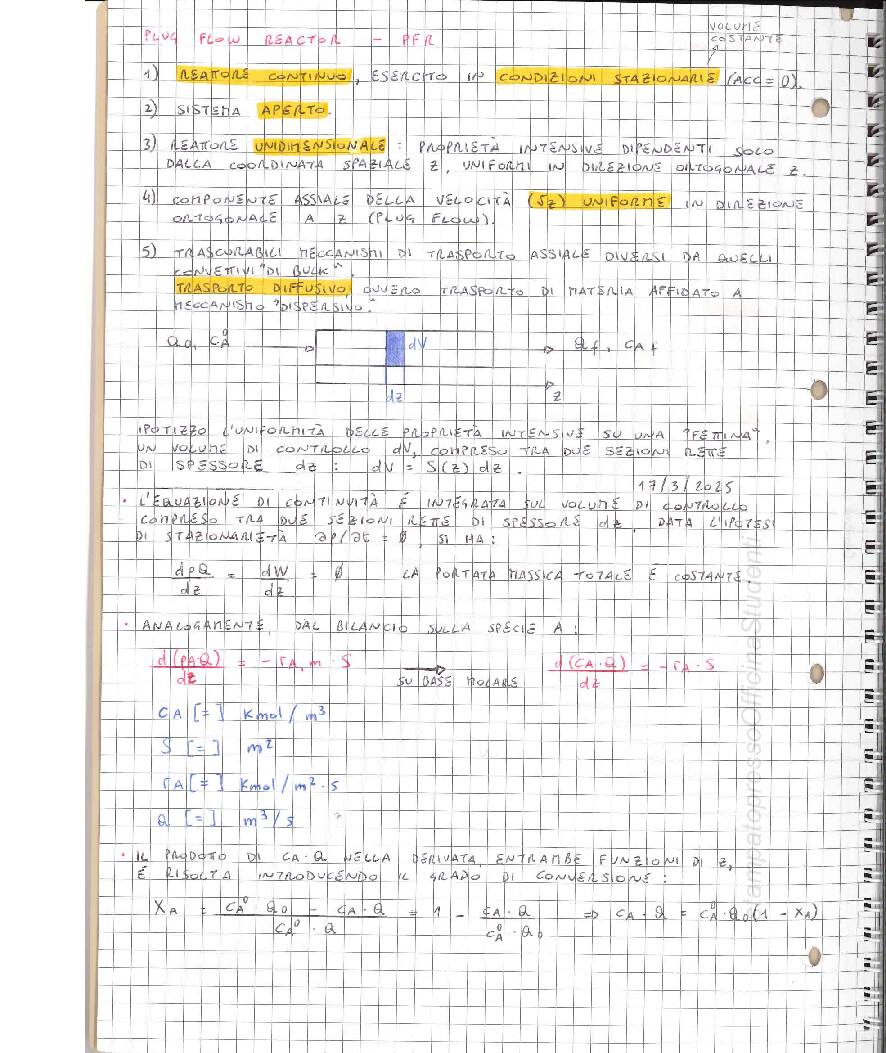 VOLUME
COSTANTE
PLUG FLOW REACTOR - PFR
1) REATTORE CONTINUO, ESERCITO IN CONDIZIONI STAZIONARIE (ACC = 0).
2) SISTEMA APERTO.
3) REATTORE UNIDIMENSIONALE : PROPRIETÀ INTENSIVE DIPENDENTI SOLO
DALLA COORDINATA SPAZIALE Z, UNIFORMI IN DIREZIONE ORTOGONALE Z.
4) COMPONENTE ASSIALE DELLA VELOCITÀ (vz) UNIFORME IN DIREZIONE
ORTOGONALE A Z (PLUG FLOW).
5) TRASCURABILI MECCANISMI DI TRASPORTO ASSIALE DIVERSI DA QUELLI
CONVETTIVI "DI BULK".
TRASPORTO DIFFUSIVO, OVVERO TRASPORTO DI MATERIA AFFIDATO A
MECCANISMO "DISPERSIVO".
Q0, CA0 dV Qf, CAf
dz z
IPOTIZZO L'UNIFORMITÀ DELLE PROPRIETÀ INTENSIVE SU UNA "FETTINA",
UN VOLUME DI CONTROLLO dV, COMPRESO TRA DUE SEZIONI RETTE
DI SPESSORE dz : dV = S(z) dz .
17/3/2025
• L'EQUAZIONE DI CONTINUITÀ È INTEGRATA SUL VOLUME DI CONTROLLO
COMPRESO TRA DUE SEZIONI RETTE DI SPESSORE dz, DATA L'IPOTESI
DI STAZIONARIETÀ ∂ρ/∂t = 0, SI HA :
dρQ/dz = dW/dz = 0 LA PORTATA MASSICA TOTALE È COSTANTE.
• ANALOGAMENTE, DAL BILANCIO SULLA SPECIE A :
d(ρA·Q)/dz = - rA,m · S → SU BASE MOLARE d(CA·Q)/dz = - rA · S
CA [=] Kmol/m³
S [=] m²
rA [=] Kmol/m²·s
Q [=] m³/s
• IL PRODOTO DI CA·Q NELLA DERIVATA, ENTRAMBE FUNZIONI DI Z,
È RISOLTA INTRODUCENDO IL GRADO DI CONVERSIONE :
XA = (CA0 · Q0 - CA · Q)/(CA0 · Q) = 1 - (CA · Q)/(CA0 · Q0) ⇒ CA · Q = CA0 · Q0 (1 - XA)
StampatopressoOfficinaStudenti